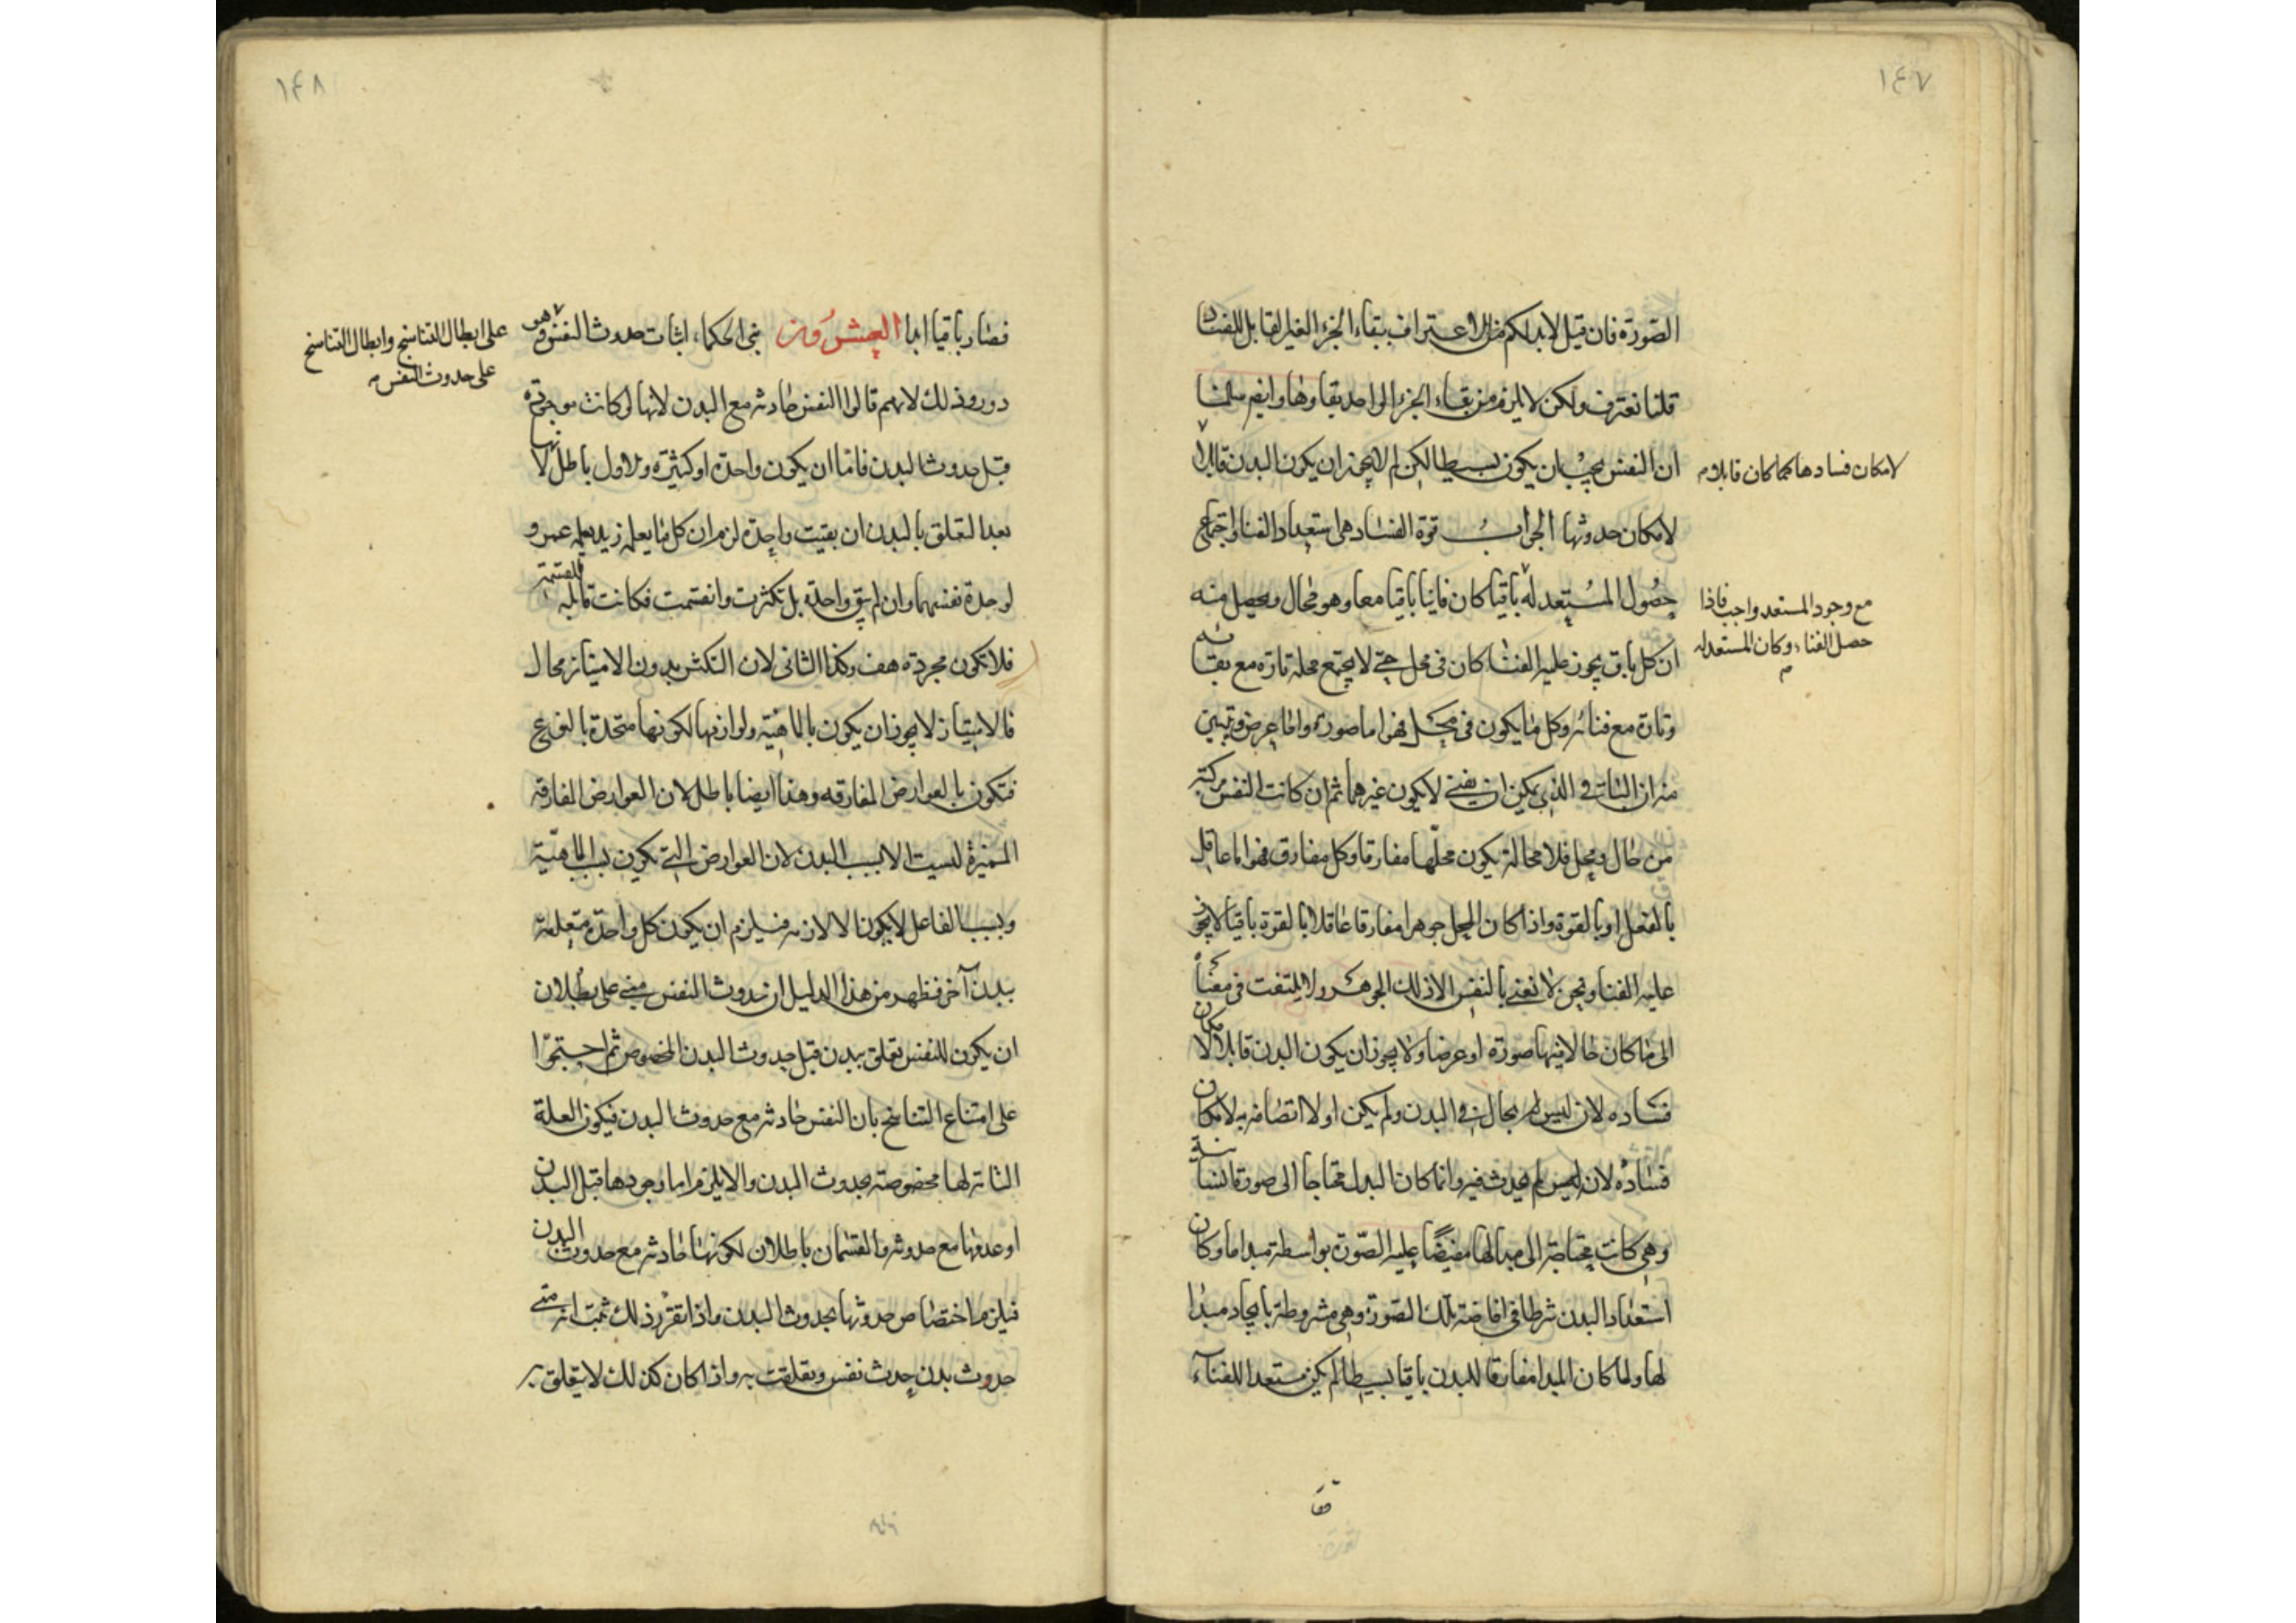 ١٤٧
الصورة فان قيل لابد لكم من الاعتراف ببقاء الجزء الغير القابل للفساد
قلنا نعترف ولكن لا يلزم من بقاء الجزء الواحد بقاوها وايضم سلمنا
ان النفس يجب ان يكون بسيطا لكن لم لا يجوز ان يكون البدن قابلا
لامكان فسادها كما كان قابلا م
لامكان حدوثها الجواب قوة الفساد هى استعداد الفنا واجتماع
حصول المستعد له باقيا كان فانيا باقيا معا وهو محال ويحصل منه
مع وجود المستعد واجب فاذا
حصل الفناء وكان المستعد له
م
ان كل باق يجوز عليه الفنا كان فى محل حتى لا يجتمع محله تارة مع بقائه
وتارة مع فنائه وكل ما يكون فى محل فهو اما صورة واما عرض وتبين
منه ان الباقى الذى يمكن ان يفنى لا يكون غيرهما ثم ان كانت النفس مركبة
من حال ومحل فلا محالة يكون محلها مفارقا وكل مفارق فهو اما عاقل
بالفعل او بالقوة واذا كان المحل جوهرا مفارقا عاقلا بالقوة باقيا لا يجوز
عليه الفنا ونحن لا نعنى بالنفس الا ذلك الجوهر ولا يلتفت فى معنا
الى ما كان حالا فيها صورة او عرضا ولا يجوز ان يكون البدن قابلا لامكان
فساده لان ليس له بحال فى البدن ولم يكن اولا اتصافه به لامكان
فساده لان ليس لم يحدث فيه وانما كان البدل محتاجا الى صورة انسانية
وهى كانت محتاجة الى مبدا لها مفيضا عليه الصورة بواسطة مبدا ما وكان
استعداد البدن شرطا فى افاضة تلك الصورة وهى مشروطة بايجاد مبدا
لها ولما كان المبدا مفارقا للبدن باقيا بسيطا لم يكن مستعدا للفناء
١٤٨
فصار باقيا ابدا العشرون بنى الحكماء اثبات حدوث النفس وهو
على ابطال التناسخ وابطال التناسخ
على حدوث النفس م
دور وذلك لانهم قالوا النفس حادثه مع البدن لانها لو كانت موجودة
قبل حدوث البدن فاما ان يكون واحدة او كثيرة والاول باطل لانها
بعد التعلق بالبدن ان بقيت واحدة لزم ان كل ما يعلم زيد يعلمه عمرو
لوحدة نفسهما وان لم تبق واحدة بل تكثرت وانقسمت فكانت قابلة للقسمة
فلا تكون مجردة هف وكذا الثانى لان التكثر بدون الامتياز محال
فالامتياز لا يجوز ان يكون بالماهية ولوازمها لكونها متحدة بالنوع
فتكون بالعوارض المفارقه وهذا ايضا باطل لان العوارض المفارقة
المميزة ليست الا بسبب البدن لان العوارض التى تكون بسبب الماهية
وبسبب الفاعل لا يكون الا لازمه فيلزم ان يكون كل واحدة متعلقة
ببدن آخر فظهر من هذا الدليل ان حدوث النفس مبنى على بطلان
ان يكون للنفس تعلق ببدن قبل حدوث البدن المخصوص ثم احتجوا
على امتناع التناسخ بان النفس حادثه مع حدوث البدن فيكون العلة
التامه لها مخصوصة بحدوث البدن والا يلزم اما وجودها قبل البدن
او عدمها مع حدوثه والقسمان باطلان لكونها حادثه مع حدوث البدن
فيلزم اختصاص حدوثها بحدوث البدن واذا تقرر ذلك ثبت انه متى
حدوث بدن حدث نفس وتعلقت به واذا كان كذلك لا يتعلق به